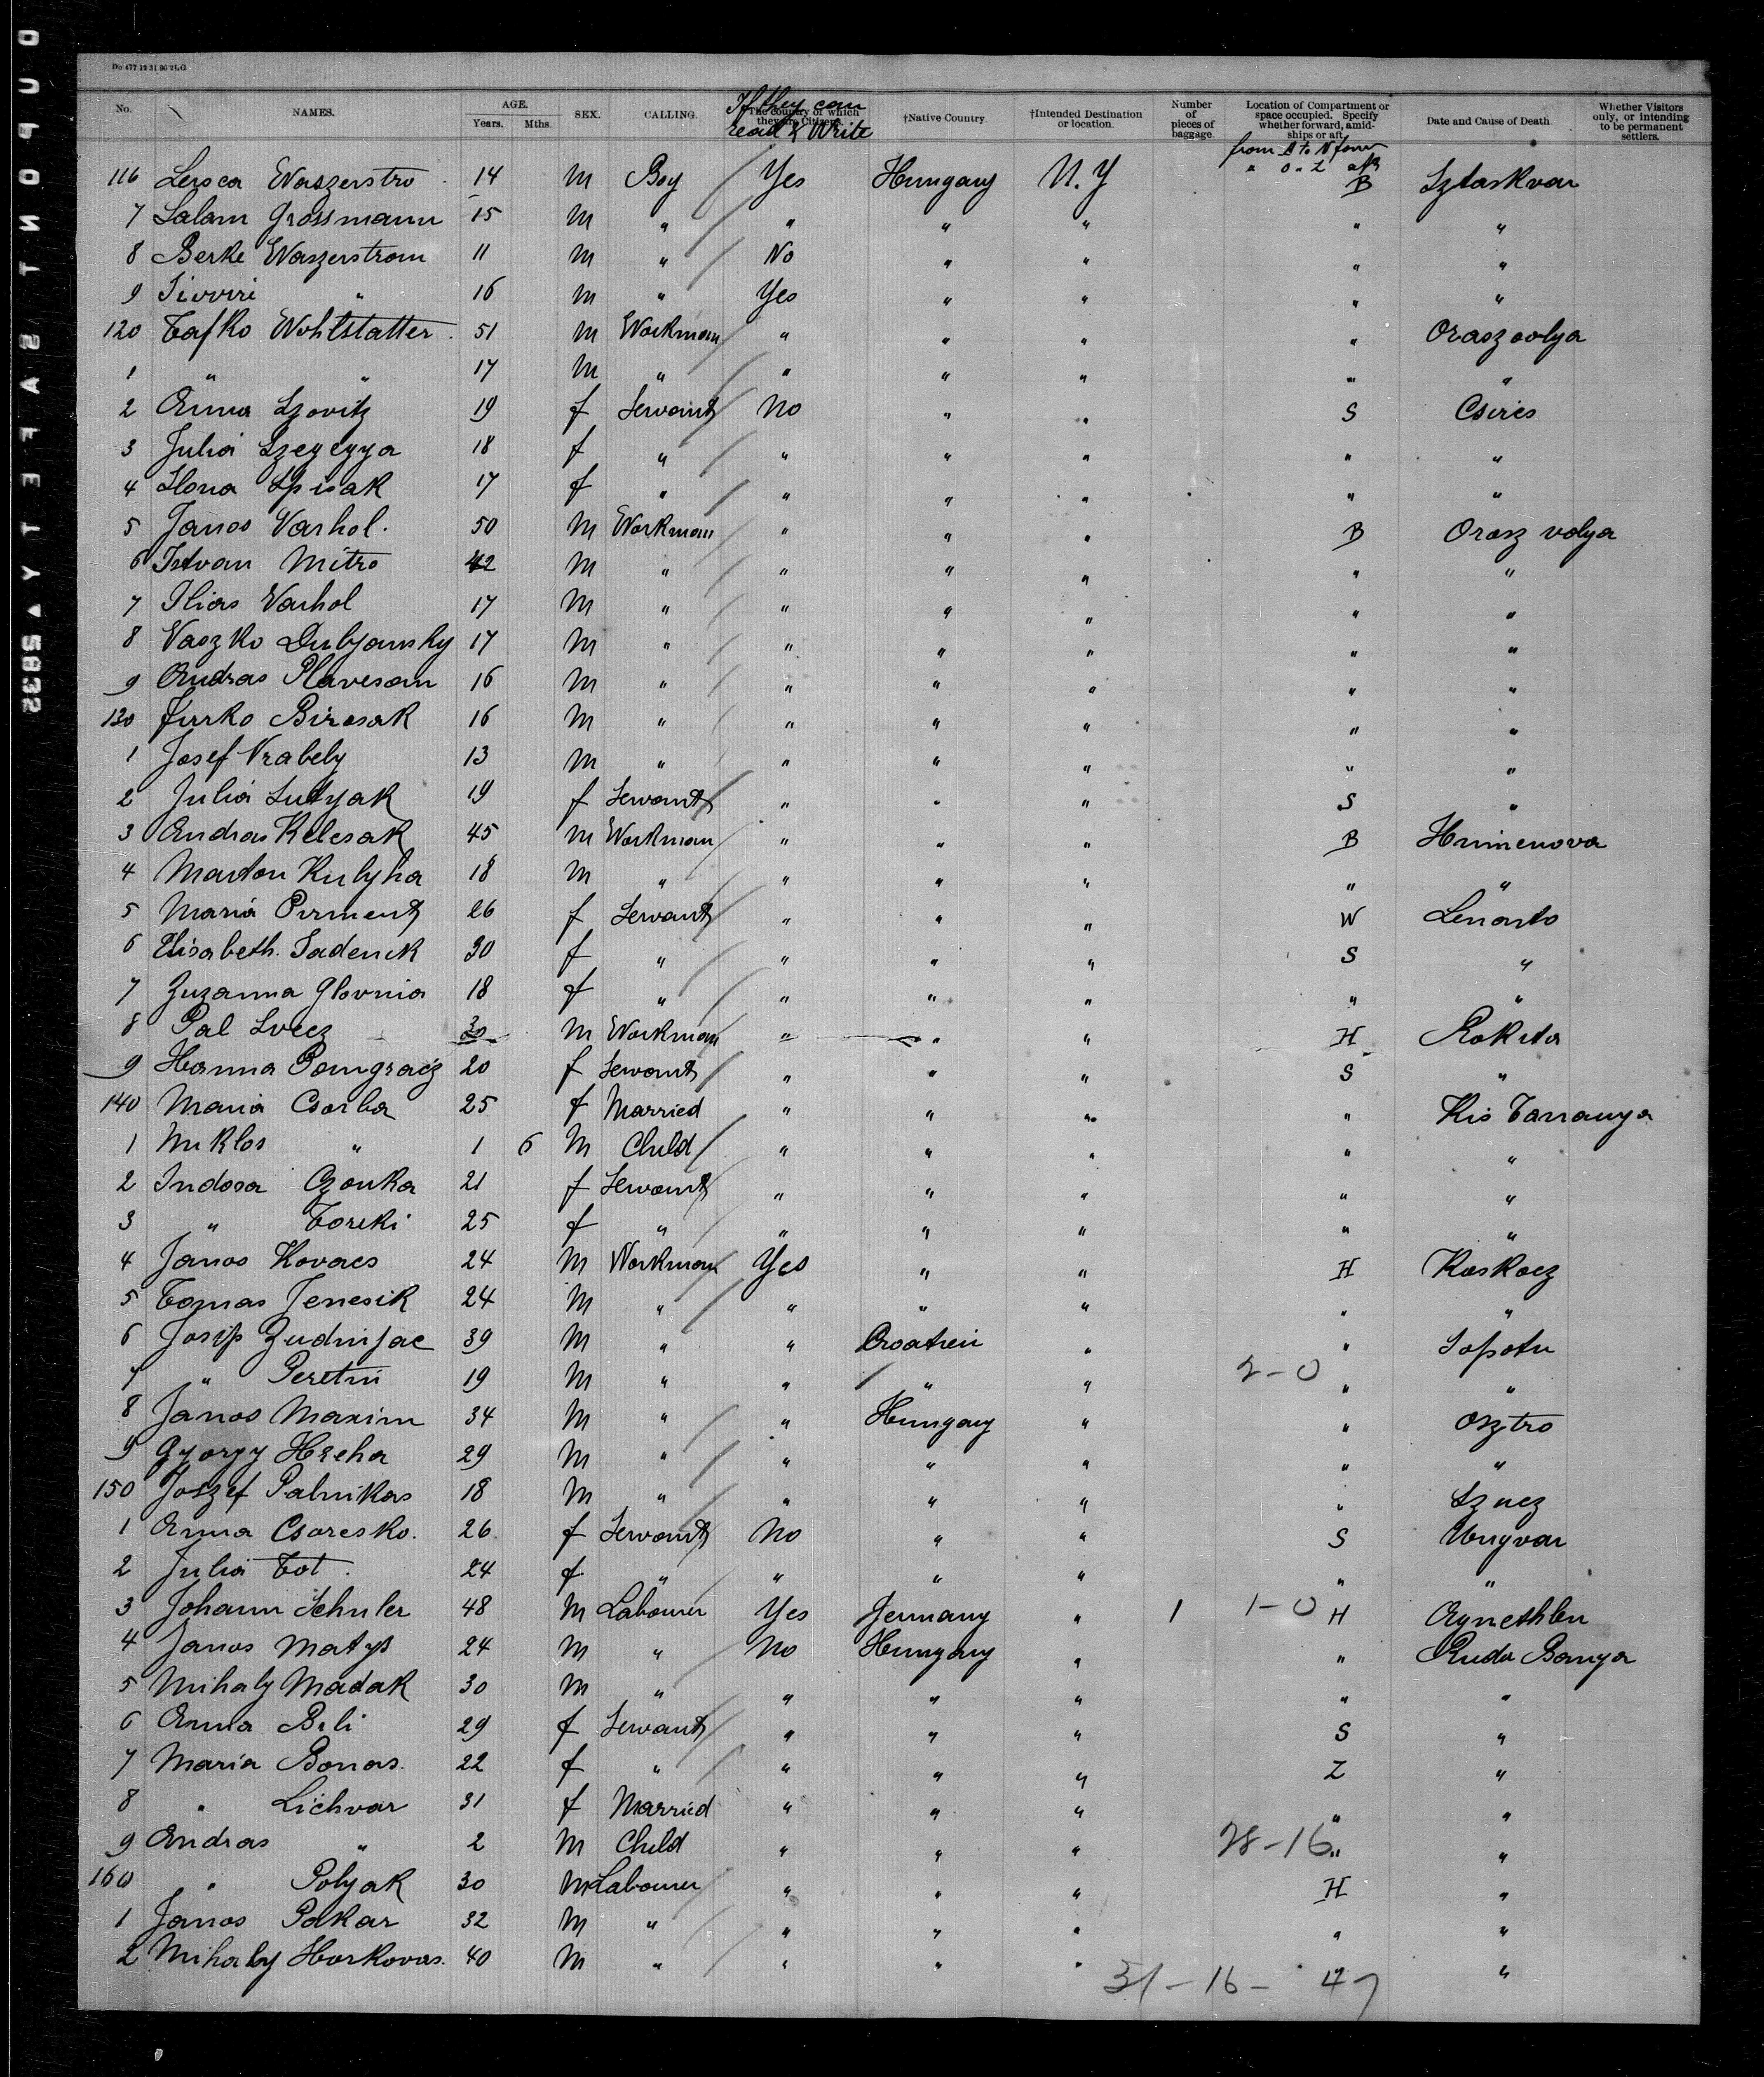 DUPONT SAFETY ▲ 5832
Do 477 12 31 96 2LG
No. NAMES. AGE. Years. Mths. SEX. CALLING. The country of which they are Citizens. †Native Country. †Intended Destination or location. Number of pieces of baggage. Location of Compartment or space occupied. Specify whether forward, amidships or aft. Date and Cause of Death. Whether Visitors only, or intending to be permanent settlers.
If they can read & Write
from A to N forw
" O " Z aft
116 Lersca Waszerstro 14 M Boy Yes Hungary N.Y B Sztaskvar
7 Salam Grossmann 15 M " " " " " "
8 Berke Waszerstrom 11 M " No " " " "
9 " 16 M " Yes " " " "
120 Tafko Wohlstatter. 51 M Workman " " " " Oraszvolya
1 " " 17 M " " " " " "
2 Anna Szovitz 19 f Servant No " " S Csires
3 Julia Szegegya 18 f " " " " " "
4 Ilona Spisak 17 f " " " " " "
5 Janos Varhol. 50 M Workman " " " B Orosz volya
6 Istvan Mitro 42 M " " " " " "
7 Ilias Varhol 17 M " " " " " "
8 Vaszko Dubjansky 17 M " " " " " "
9 Andras Plavesan 16 M " " " " " "
130 Jurko Birosak 16 M " " " " " "
1 Josef Vrabely 13 M " " " " " "
2 Julia Sutyak 19 f Servant " " " S "
3 Andras Kelesak 45 M Workman " " " B Hrimenova
4 Marton Kulyha 18 M " " " " " "
5 Maria Pirment 26 f Servant " " " W Lenarto
6 Elisabeth. Sadenik 30 f " " " " S "
7 Zuzanna Glovnia 18 f " " " " " "
8 Pal Svecz 30 M Workman " " " H Rokita
9 Hanna Pongracz 20 f Servant " " " S "
140 Maria Csorba 25 f Married " " " " Kis Tarranya
1 Miklos " 1 6 M Child " " " " "
2 Indosa Czonka 21 f Servant " " " " "
3 " Toreki 25 f " " " " " "
4 Janos Kovacs 24 M Workman Yes " " H Koskocz
5 Tomas Jenesik 24 M " " " " " "
6 Josip Zudinjac 39 M " " Croatien " " Sopotu
7 " Peretin 19 M " " " " 2-0 " "
8 Janos Maxim 34 M " " Hungary " " Osztro
9 Gyorgy Hreha 29 M " " " " " "
150 Joszef Palmikas 18 M " " " " " Szucz
1 Anna Csaresko. 26 f Servant No " " S Ungvar
2 Julia Tot. 24 f " " " " " "
3 Johann Schuler 48 M Labourer Yes Germany " 1 1-0 H Agnethlen
4 Janos Matys 24 M " No Hungary " " Ruda Banya
5 Mihaly Madak 30 M " " " " " "
6 Anna Beli 29 f Servant " " " S "
7 Maria Bonas. 22 f " " " " Z "
8 " Lichvar 31 f Married " " " " "
9 Andras " 2 M Child " " " 28-16 " "
160 " Polyak 30 M Labourer " " " H "
1 Janos Pakar 32 M " " " " " "
2 Mihaly Horkovas. 40 M " " " " " "
31-16-47